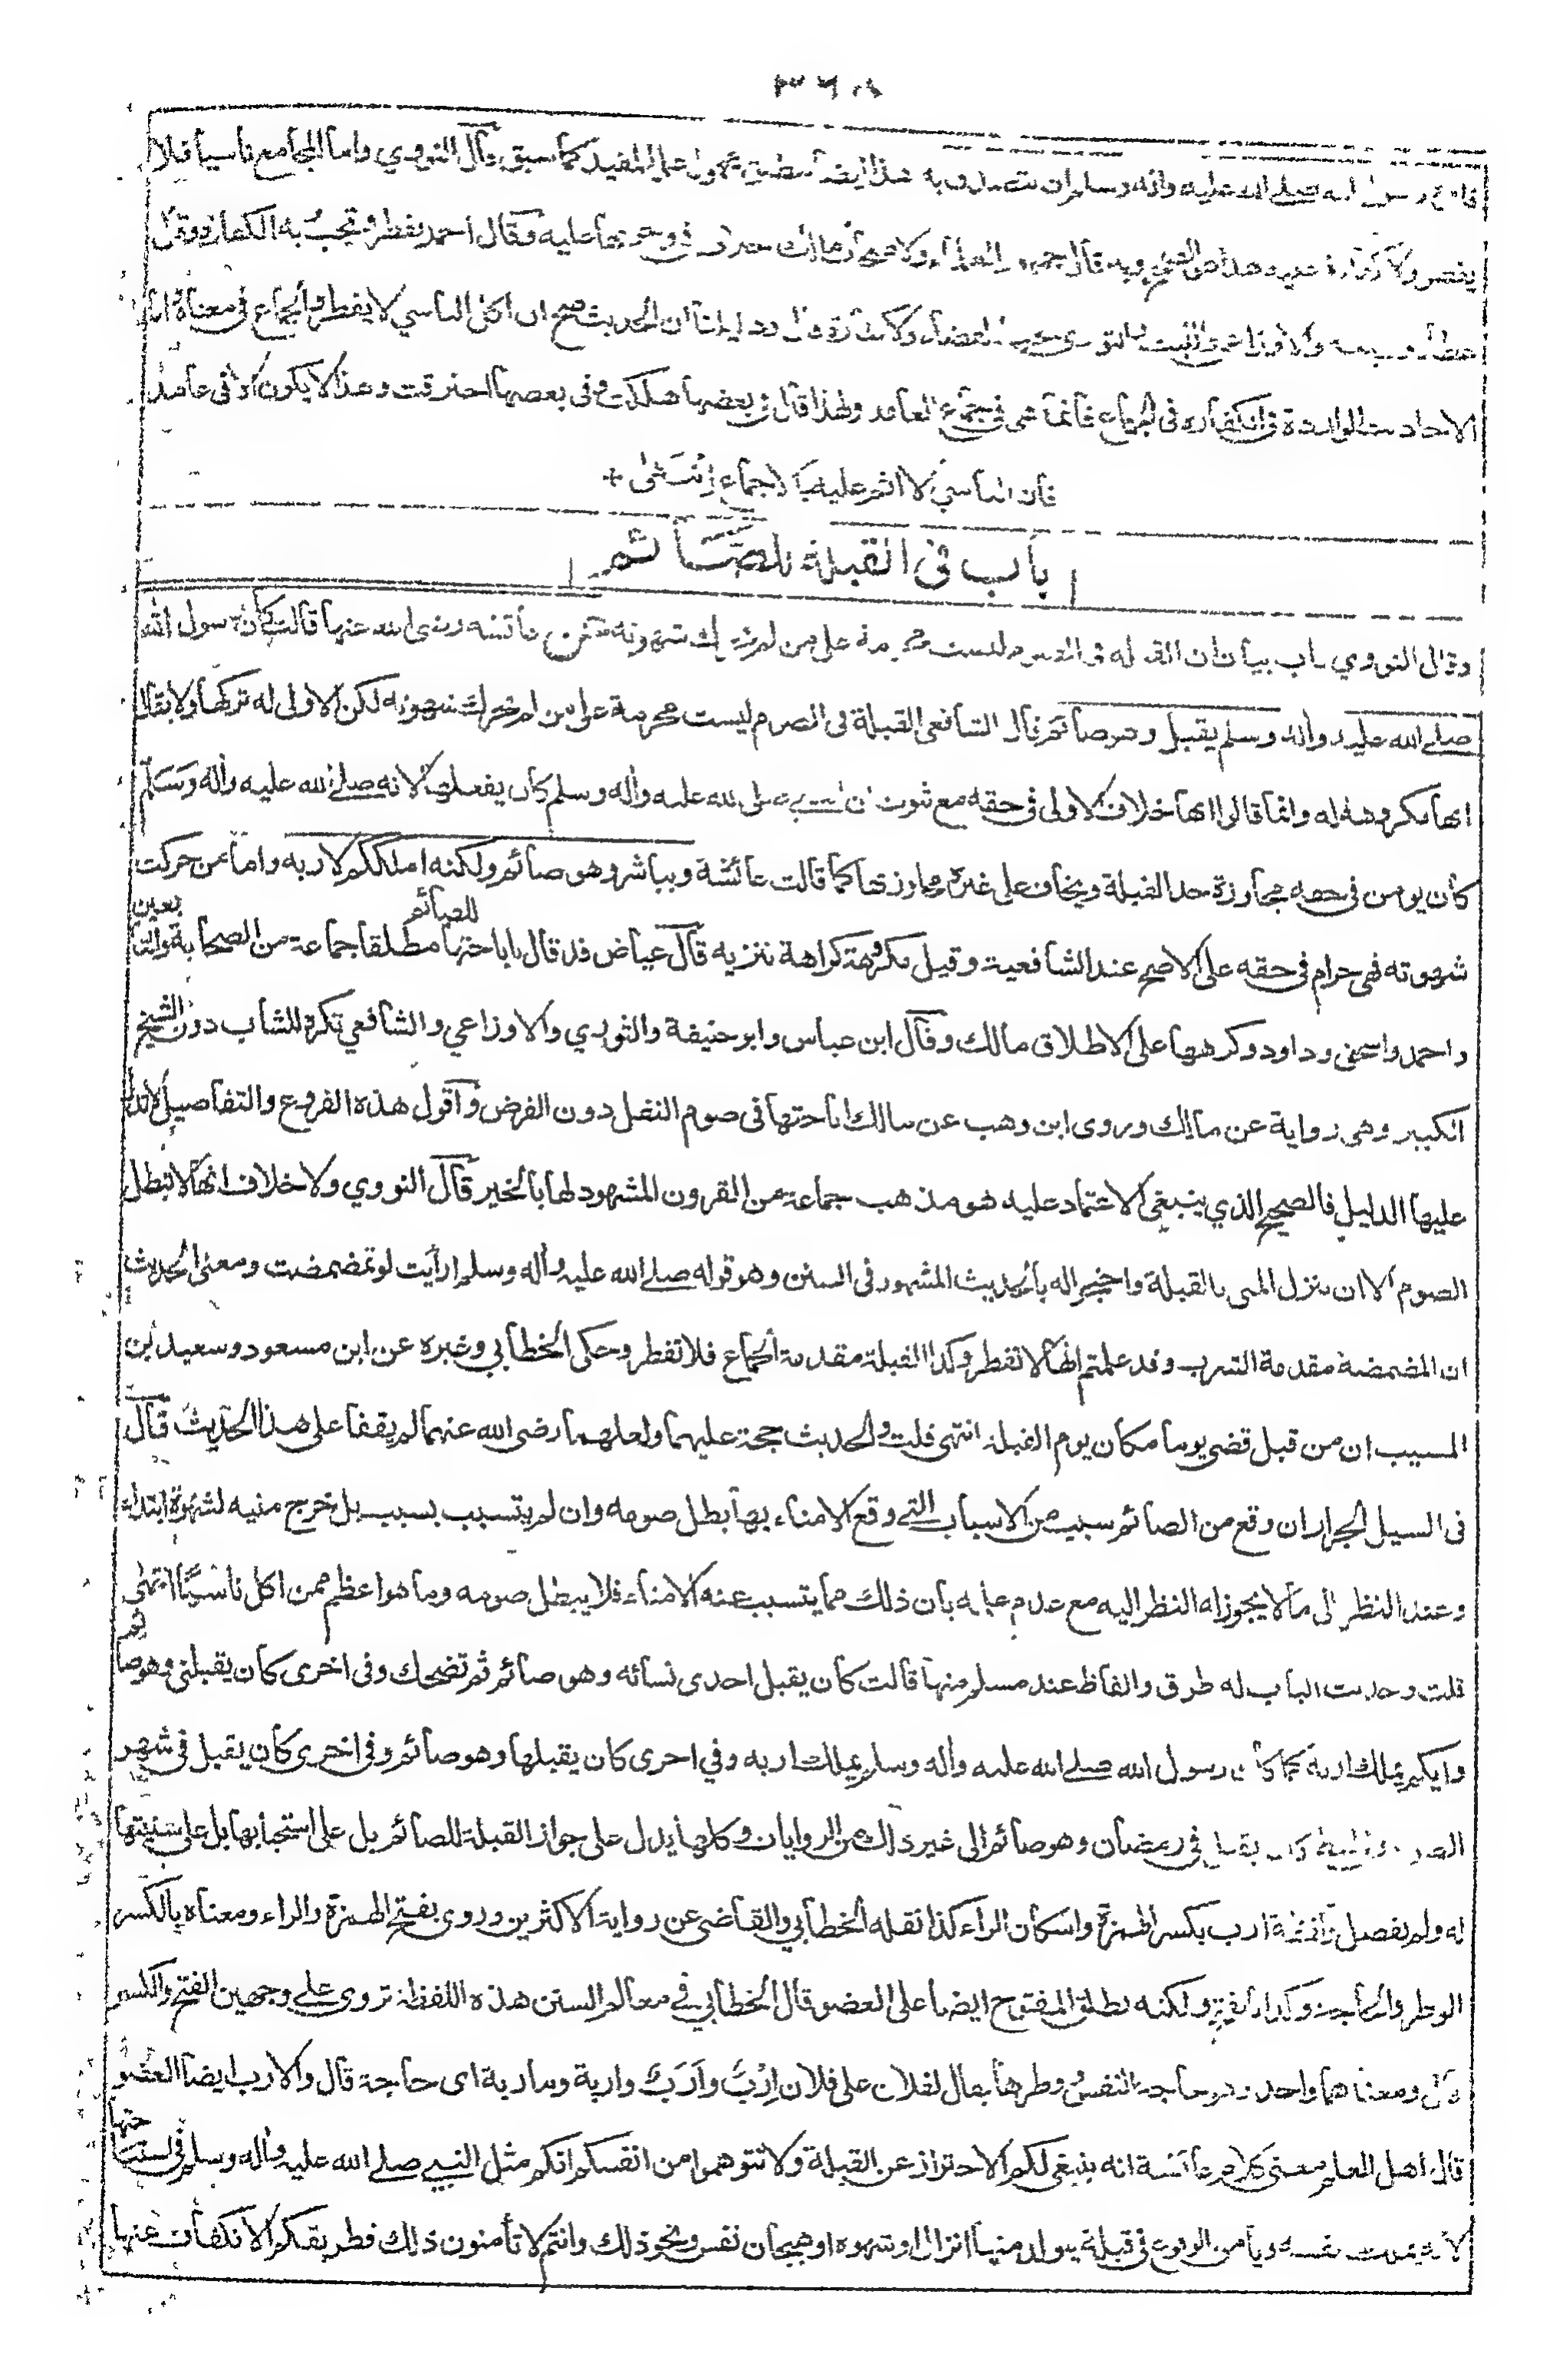 ٣٦٨
رسول الله صلے الله عليه وأله وسلم ان يتصدق به هذا ايضا مطلق محمول على المقيد كما سبق قال النووي واما المجامع ناسيا فلا
يفطر ولا كفارة عليه هذا هو الصحيح وبه قال جمهور العلماء ولاصحاب مالك خلاف في وجوبها عليه وقال احمد يفطر وتجب به الكفارة وقال
عطاء وربيعة والاوزاعي والليث والثوري يجب القضاء ولا كفارة قال دليلنا ان الحديث صح ان اكل الناسي لا يفطر والجماع في معناه واما
الاحاديث الواردة في الكفارة في الجماع فانما هي في جماع العامد ولهذا قال في بعضها هلكت وفي بعضها احترقت وهذا لا يكون الا في عامد
فان الناسي لا اثم عليه بالاجماع انتهى +
باب في القبلة للصائم
وقال النووي باب بيان ان القبلة في الصوم ليست محرمة على من لم تحرك شهوته عن عائشة رضى الله عنها قالت كان رسول الله
صلے الله عليه وأله وسلم يقبل وهو صائم قال الشافعي القبلة في الصوم ليست محرمة على من لم تحرك شهوته لكن الاولى له تركها ولا يقال
انها مكروهة له وانما قالوا انها خلاف الاولى في حقه مع ثبوت ان النبي صلى الله عليه وأله وسلم كان يفعلها لانه صلے الله عليه وأله وسلم
كان يومن في حقه مجاوزة حد القبلة ويخاف على غيره مجاوزتها كما قالت عائشة ويباشر وهو صائم ولكنه املككم لاربه واما من حركت
شهوته فهي حرام في حقه على الاصح عند الشافعية وقيل مكروهة كراهة تنزيه قال عياض قد قال باباحتها للصائم مطلقا جماعة من الصحابة والتابعين
واحمد واسحق وداود وكرهها على الاطلاق مالك وقال ابن عباس وابو حنيفة والثوري والاوزاعي والشافعي تكره للشاب دون الشيخ
الكبير وهي رواية عن مالك وروى ابن وهب عن مالك اباحتها في صوم النفل دون الفرض وأقول هذه الفروع والتفاصيل لا تدل
عليها الدليل فالصحيح الذي ينبغي الاعتماد عليه هو مذهب جماعة من القرون المشهود لها بالخير قال النووي ولا خلاف انها لا تبطل
الصوم الا ان ينزل المني بالقبلة واحتجوا له بالحديث المشهور في السنن وهو قوله صلے الله عليه وأله وسلم ارأيت لو تمضمضت ومعنى الحديث
ان المضمضة مقدمة الشرب وقد علمتم انها لا تفطر وكذا القبلة مقدمة الجماع فلا تفطر وحكى الخطابي وغيره عن ابن مسعود وسعيد بن
المسيب ان من قبل قضى يوما مكان يوم القبلة انتهى قلت والحديث حجة عليهما ولعلهما رضى الله عنهما لم يقفا على هذا الحديث قال
في السيل الجرار ان وقع من الصائم سبب من الاسباب التي وقع الامناء بها بطل صومه وان لم يتسبب بسبب بل خرج منيه لشهوة ابتداء
وعند النظر الى ما لا يجوز له النظر اليه مع عدم علمه بان ذلك مما يتسبب عنه الامناء فلا يبطل صومه وما هو اعظم ممن اكل ناسيا انتهى
قلت وحديث الباب له طرق والفاظ عند مسلم منها قالت كان يقبل احدى نسائه وهو صائم ثم تضحك وفي اخرى كان يقبلني وهو صائم
وايكم يملك اربه كما كان رسول الله صلے الله عليه وأله وسلم يملك اربه وفي اخرى كان يقبلها وهو صائم وفي اخرى كان يقبل في شهر
الصوم وفي لفظ كان يقبل في رمضان وهو صائم الى غير ذلك من الروايات وكلها يدل على جواز القبلة للصائم بل على استحبابها بل على سنيتها
له ولم يفصل ارب بكسر الهمزة واسكان الراء كذا نقله الخطابي والقاضي عن رواية الاكثرين وروى بفتح الهمزة والراء ومعناه بالكسر
الوطر والحاجة وكذا بالفتح ولكنه يطلق المفتوح ايضا على العضو قال الخطابي في معالم السنن هذه اللفظة تروى على وجهين الفتح والكسر
قال ومعناهما واحد وهو حاجة النفس وطرها يقال لفلان على فلان اِرْبٌ وأرَبٌ واربة وماربة اى حاجة قال والارب ايضا العضو
قال اهل العلم معنى كلام عائشة انه ينبغي لكم الاحتراز عن القبلة ولا تتوهموا من انفسكم انكم مثل النبي صلے الله عليه وأله وسلم في استباحتها
لانه يملك نفسه ويأمن الوقوع في قبلة يتولد منها انزال او شهوة او هيجان نفس ونحو ذلك وانتم لا تأمنون ذلك فطريقكم الانكفاف عنها